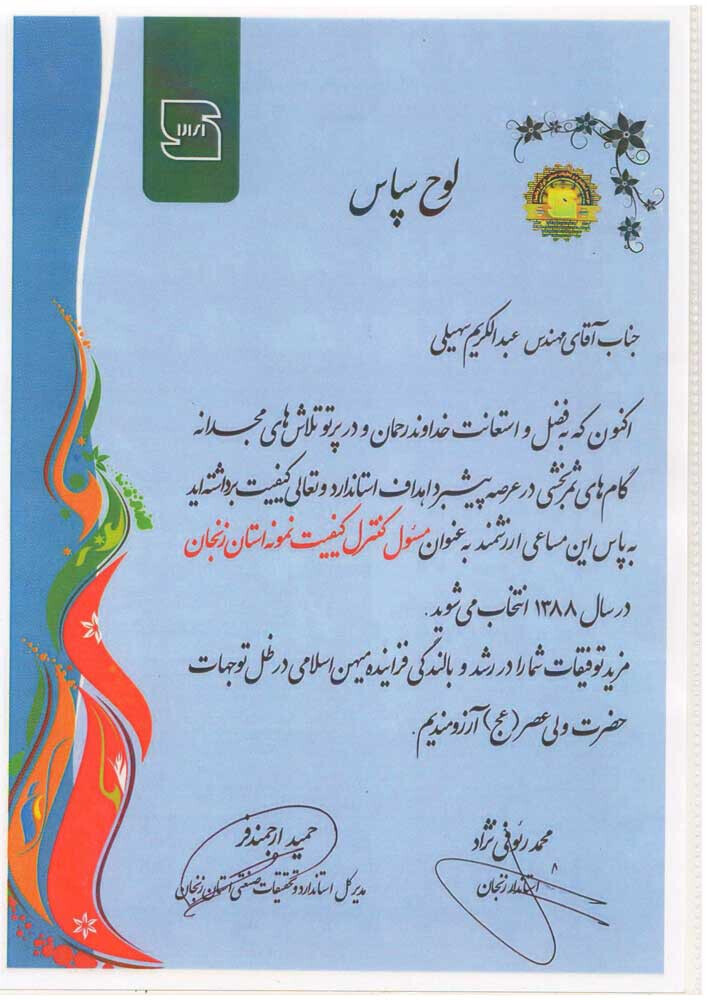 لوح سپاس
جناب آقای مهندس عبدالکریم سهیلی
اکنون که به فضل و استعانت خداوند رحمان و در پرتو تلاش های مجدانه
گام های ثمربخشی در عرصه پیشبرد اهداف استاندارد و تعالی کیفیت برداشته اید
به پاس این مساعی ارزشمند به عنوان مسئول کنترل کیفیت نمونه استان زنجان
در سال ۱۳۸۸ انتخاب می شوید.
مزید توفیقات شما را در رشد و بالندگی فزاینده میهن اسلامی در ظل توجهات
حضرت ولی عصر (عج) آرزومندیم.
محمد رئوفی نژاد
استاندار زنجان
حمید ارجمندفر
مدیر کل استاندارد و تحقیقات صنعتی استان زنجان